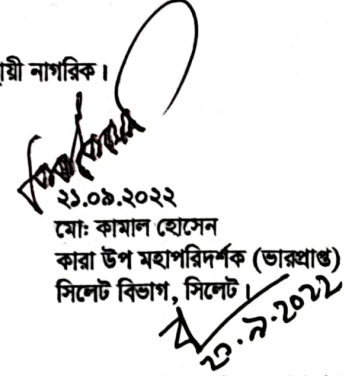 য়ী নাগরিক।
২১.০৯.২০২২
মোঃ কামাল হোসেন
কারা উপ মহাপরিদর্শক (ভারপ্রাপ্ত)
সিলেট বিভাগ, সিলেট।